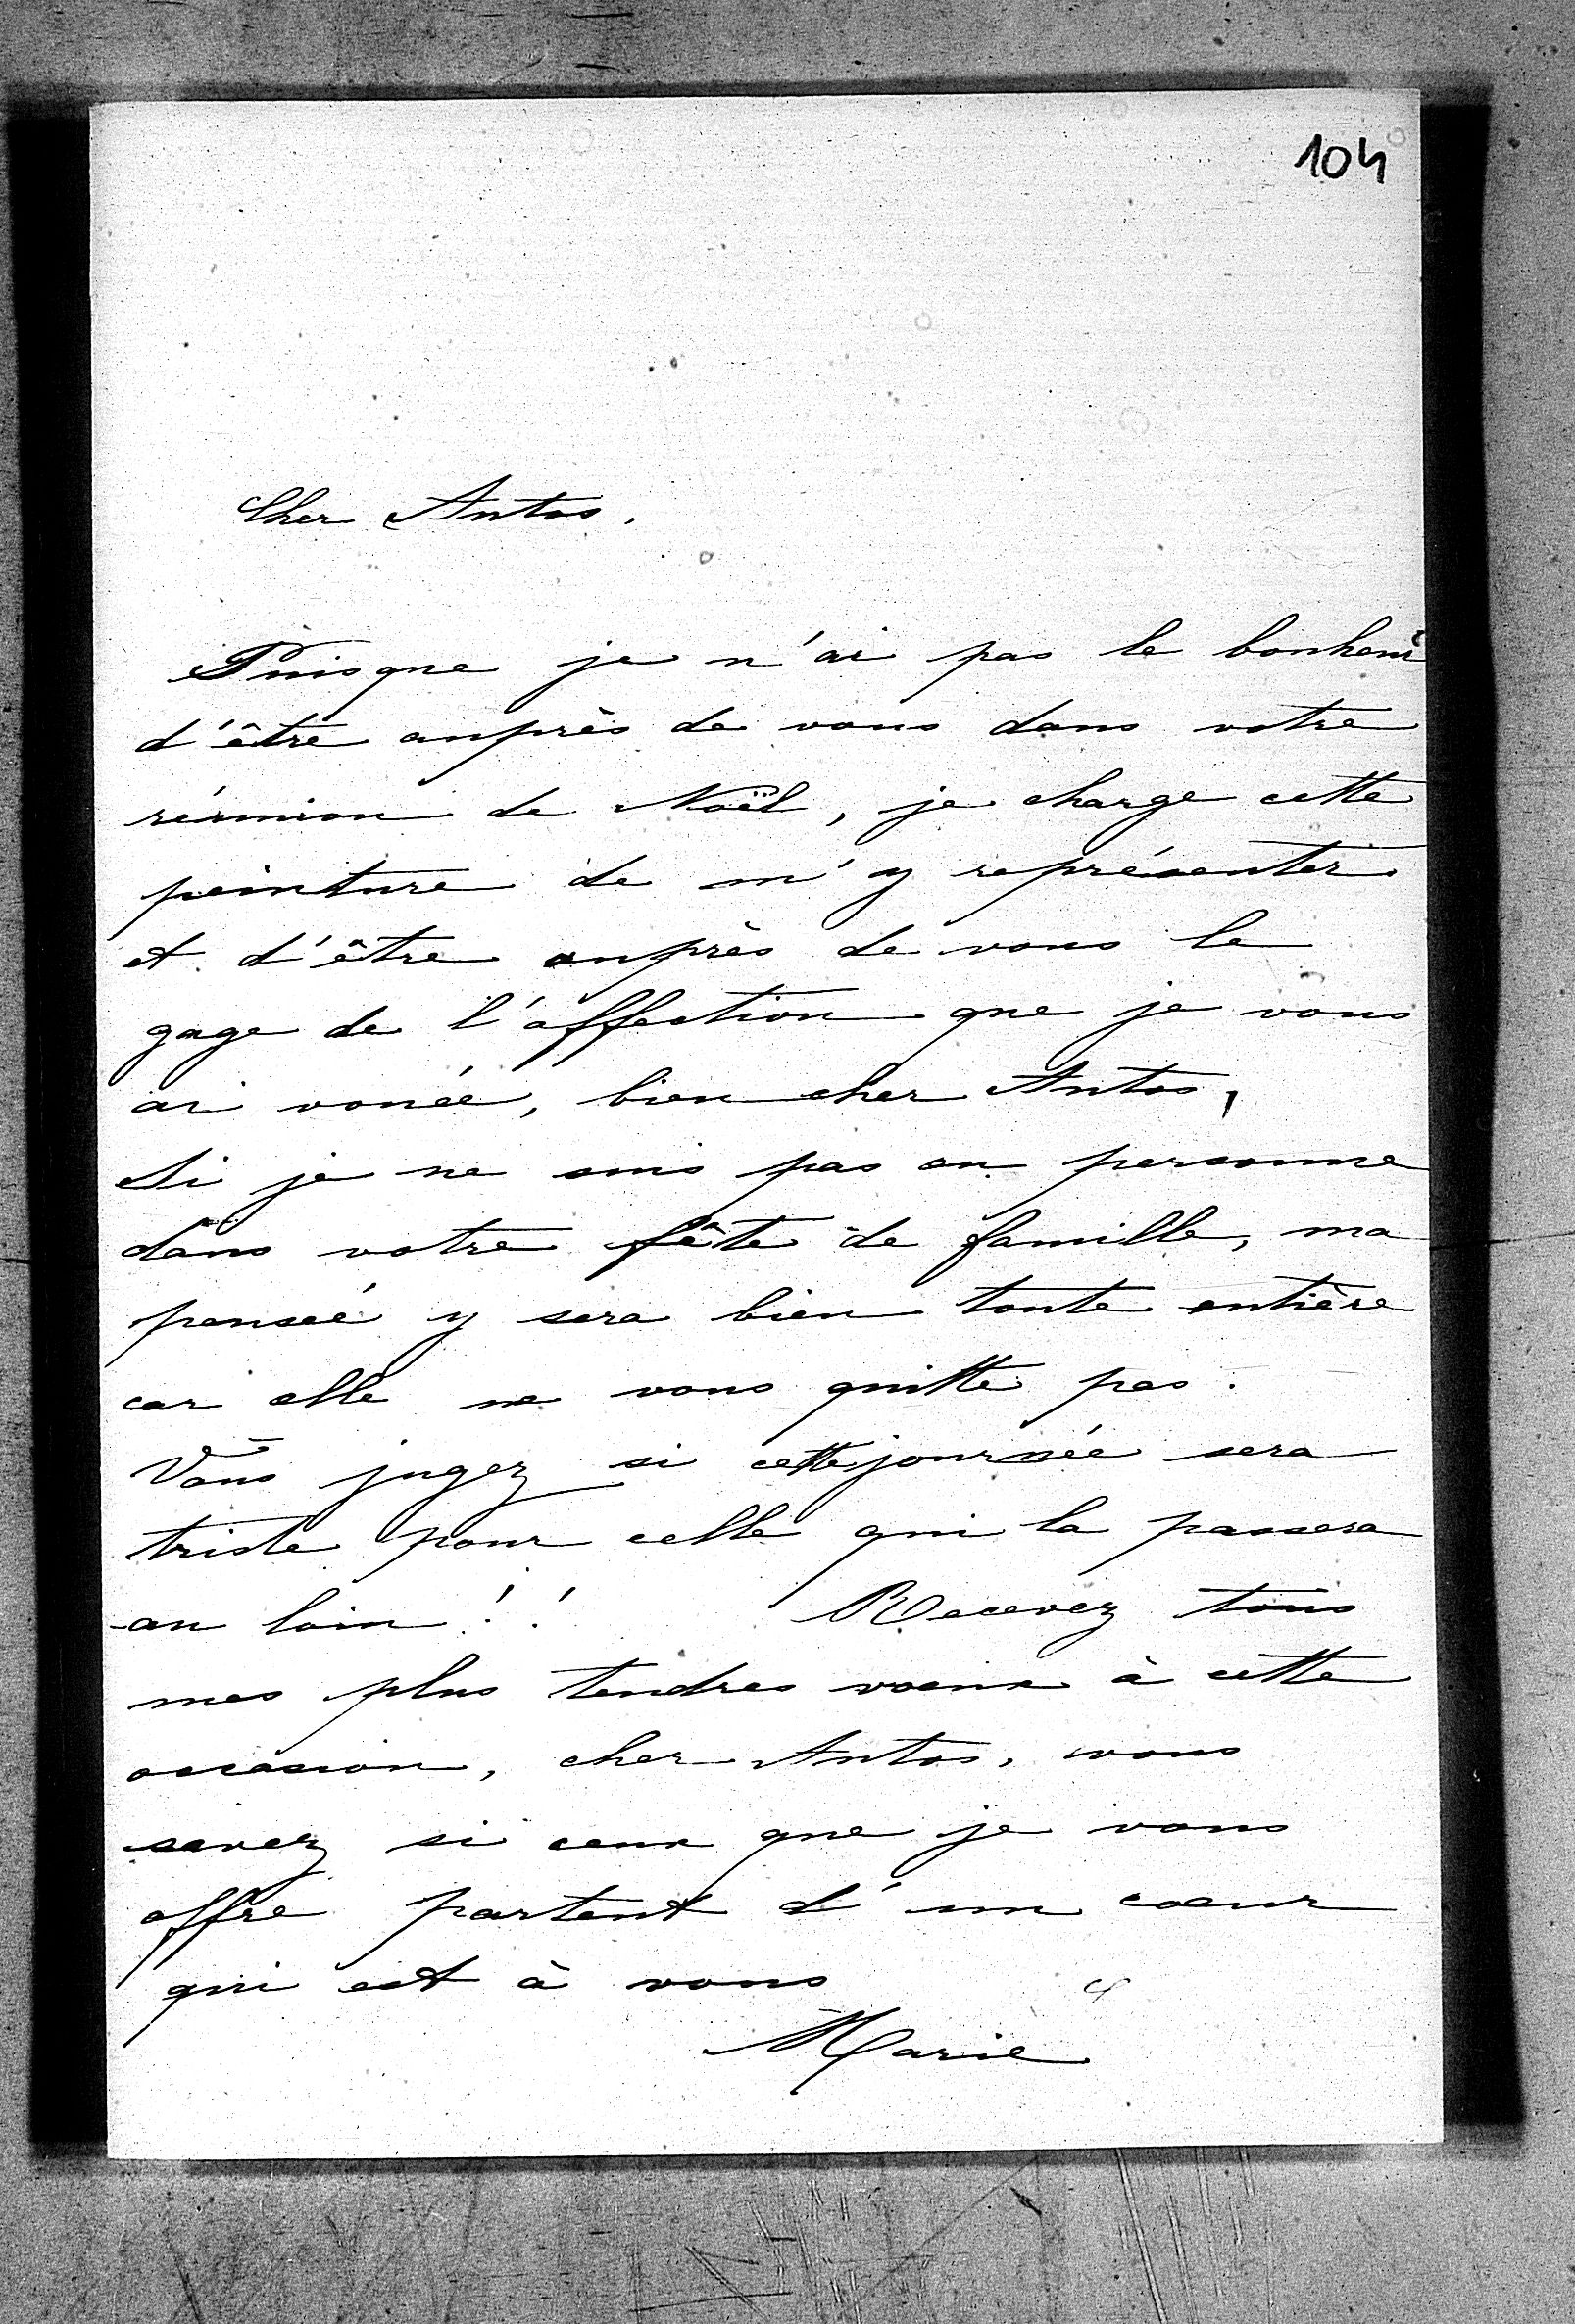 104
Cher Antos,
Puisque je n'ai pas le bonheur
d'être auprès de vous dans votre
réunion de Noël, je charge cette
peinture de m'y représenter
et d'être auprès de vous le
gage de l'affection que je vous
ai vouée, bien cher Antos,
Si je ne suis pas en personne
dans votre fête de famille, ma
pensée y sera bien toute entière
car elle ne vous quitte pas.
Vous jugez si cette journée sera
triste pour celle qui la passera
au loin!! Recevez tous
mes plus tendres voeux à cette
occasion, cher Antos, vous
savez si ceux que je vous
offre partent d'un coeur
qui est à vous
Marie